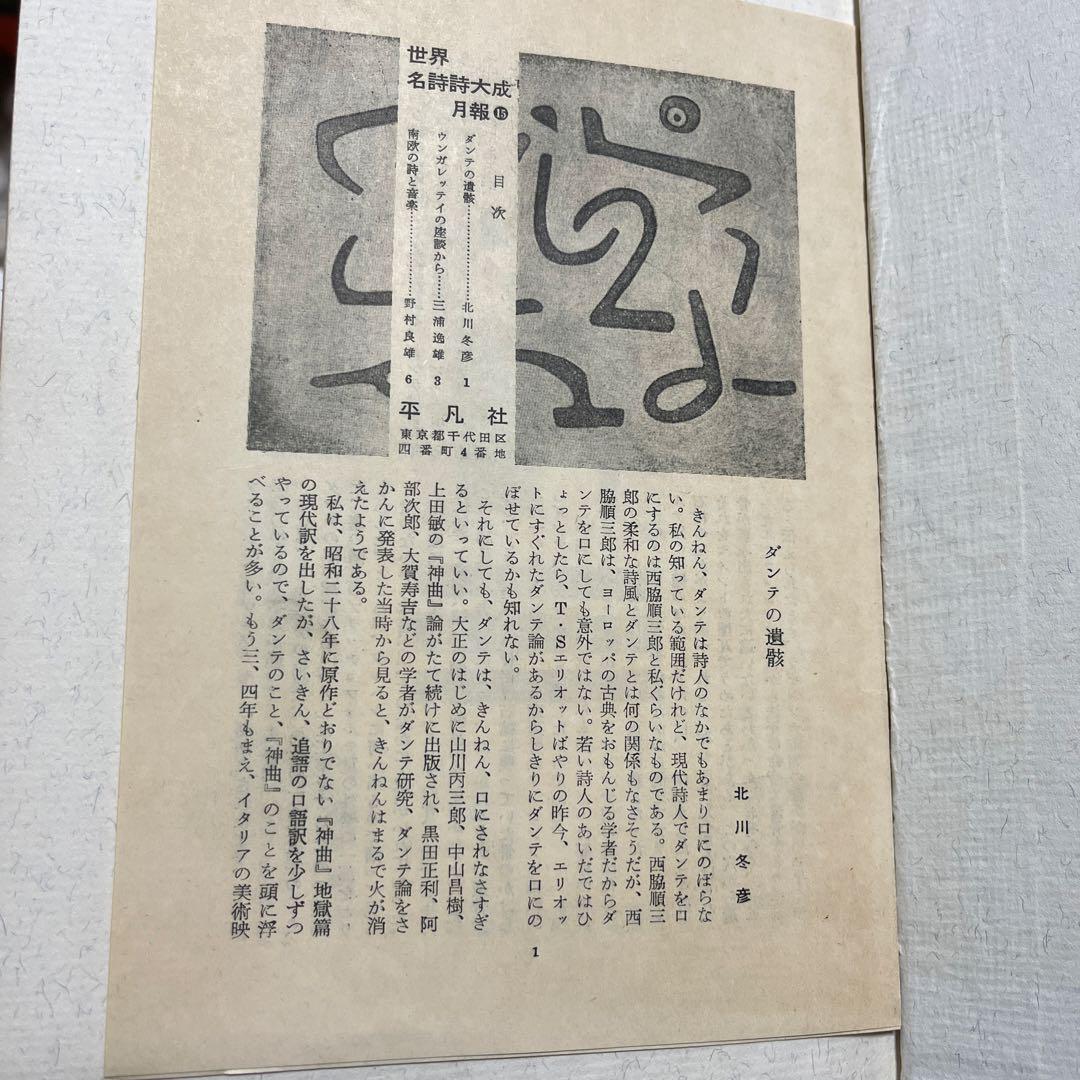 世界
名詩詩大成
月報⓯
目次
ダンテの遺骸…………………北川冬彦 1
ウンガレッティの座談から……三浦逸雄 3
南欧の詩と音楽………………野村良雄 6
平凡社
東京都千代田区
四番町4番地
ダンテの遺骸
北川冬彦
きんねん、ダンテは詩人のなかでもあまり口にのぼらな
い。私の知っている範囲だけれど、現代詩人でダンテを口
にするのは西脇順三郎と私ぐらいなものである。西脇順三
郎の柔和な詩風とダンテとは何の関係もなさそうだが、西
脇順三郎は、ヨーロッパの古典をおもんじる学者だからダ
ンテを口にしても意外ではない。若い詩人のあいだではひ
ょっとしたら、T・Sエリオットばやりの昨今、エリオッ
トにすぐれたダンテ論があるからしきりにダンテを口にの
ぼせているかも知れない。
それにしても、ダンテは、きんねん、口にされなさすぎ
るといっていい。大正のはじめに山川丙三郎、中山昌樹、
上田敏の『神曲』論がたて続けに出版され、黒田正利、阿
部次郎、大賀寿吉などの学者がダンテ研究、ダンテ論をさ
かんに発表した当時から見ると、きんねんはまるで火が消
えたようである。
私は、昭和二十八年に原作どおりでない『神曲』地獄篇
の現代訳を出したが、さいきん、追語の口語訳を少しずつ
やっているので、ダンテのこと、『神曲』のことを頭に浮
べることが多い。もう三、四年もまえ、イタリアの美術映
1